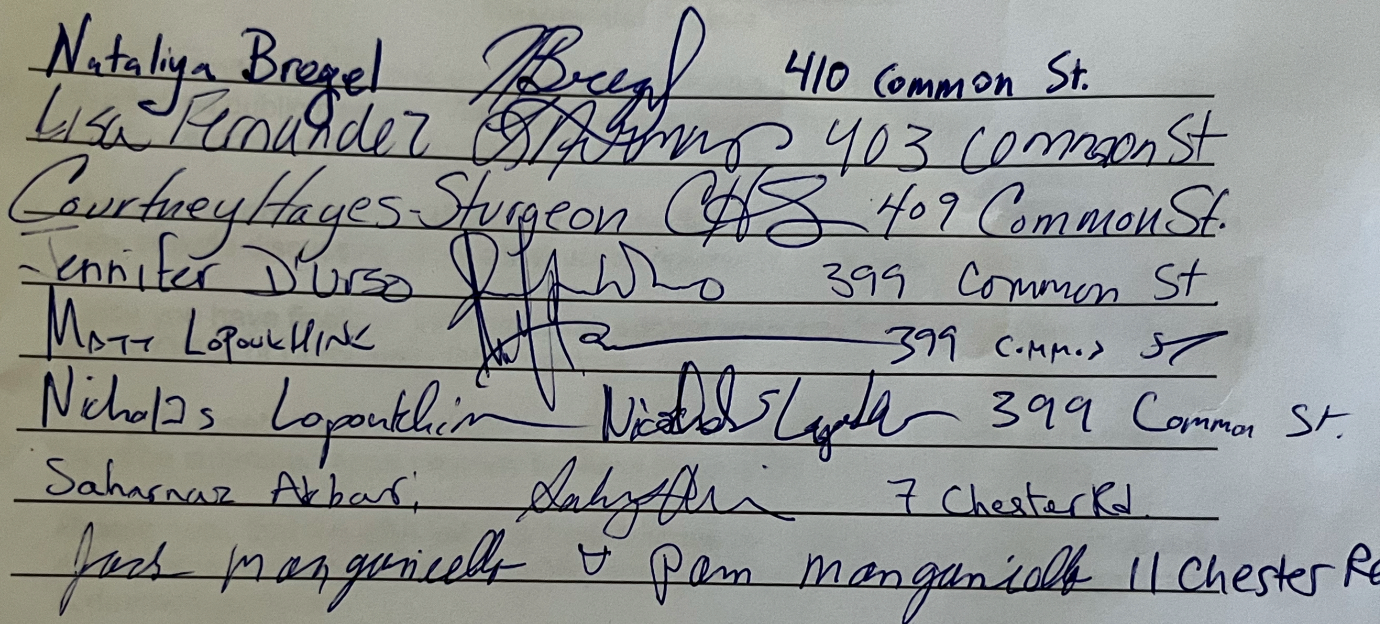 Nataliya Bregel NBregel 410 Common St.
Lisa Fernandez 403 Common St
Courtney Hayes-Sturgeon CHS 409 Common St.
Jennifer D'Urso 399 Common St
MATT LOPOUKHINE 399 Common St
Nicholas Lopoukhin Nicholas 399 Common St.
Saharnaz Akbari, 7 Chester Rd.
Jack Manganiello & Pam Manganiello 11 Chester Rd